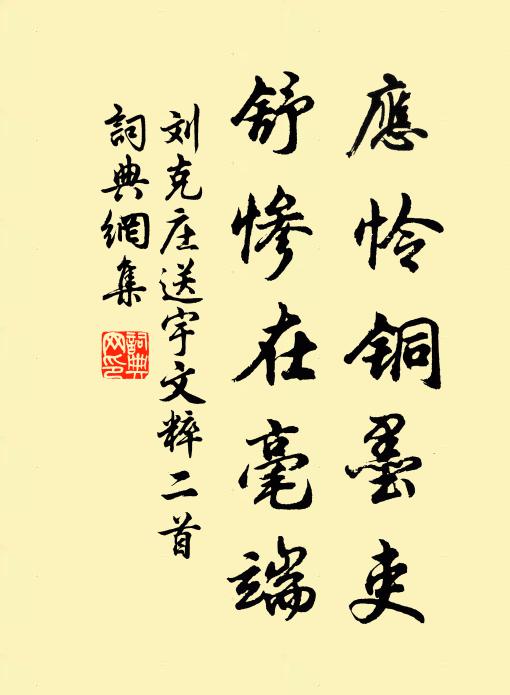 應怜铜墨吏
舒惨在毫端
刘克庄送宇文粹二首
詞典網集
詞典网印